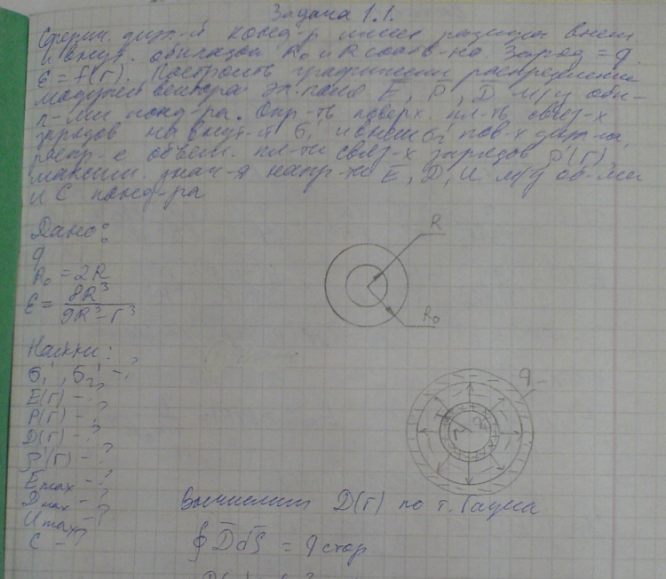 Задача 1.1.
Сферич. диэл-й конд-р имеет размеры внеш.
и внут. обкладок R₀ и R соотв-но Заряд = q.
ε = f(r). Построить графически распределение
модулей вектора эл. поля E, P, D м/у обк-
л-ми конд-ра. Опр-ть поверх. пл-ть связ-х
зарядов на внут-й σ₁' и внеш σ₂' пов-х диэл-ка,
распр-е объём. пл-ти связ-х зарядов ρ'(r),
максим. знач-я напр-ти E, D, U м/у об-ми
и C конд-ра
Дано:
q
R₀ = 2R
ε = 8R³ / 9R³ - r³
R
R₀
Найти:
σ₁', σ₂' - ?
E(r) - ?
P(r) - ?
D(r) - ?
ρ'(r) - ?
Emax - ?
Dmax - ?
Umax - ?
C - ?
q -
r
Вычислим D(r) по т. Гаусса
∮ D̄dS̄ = q стор